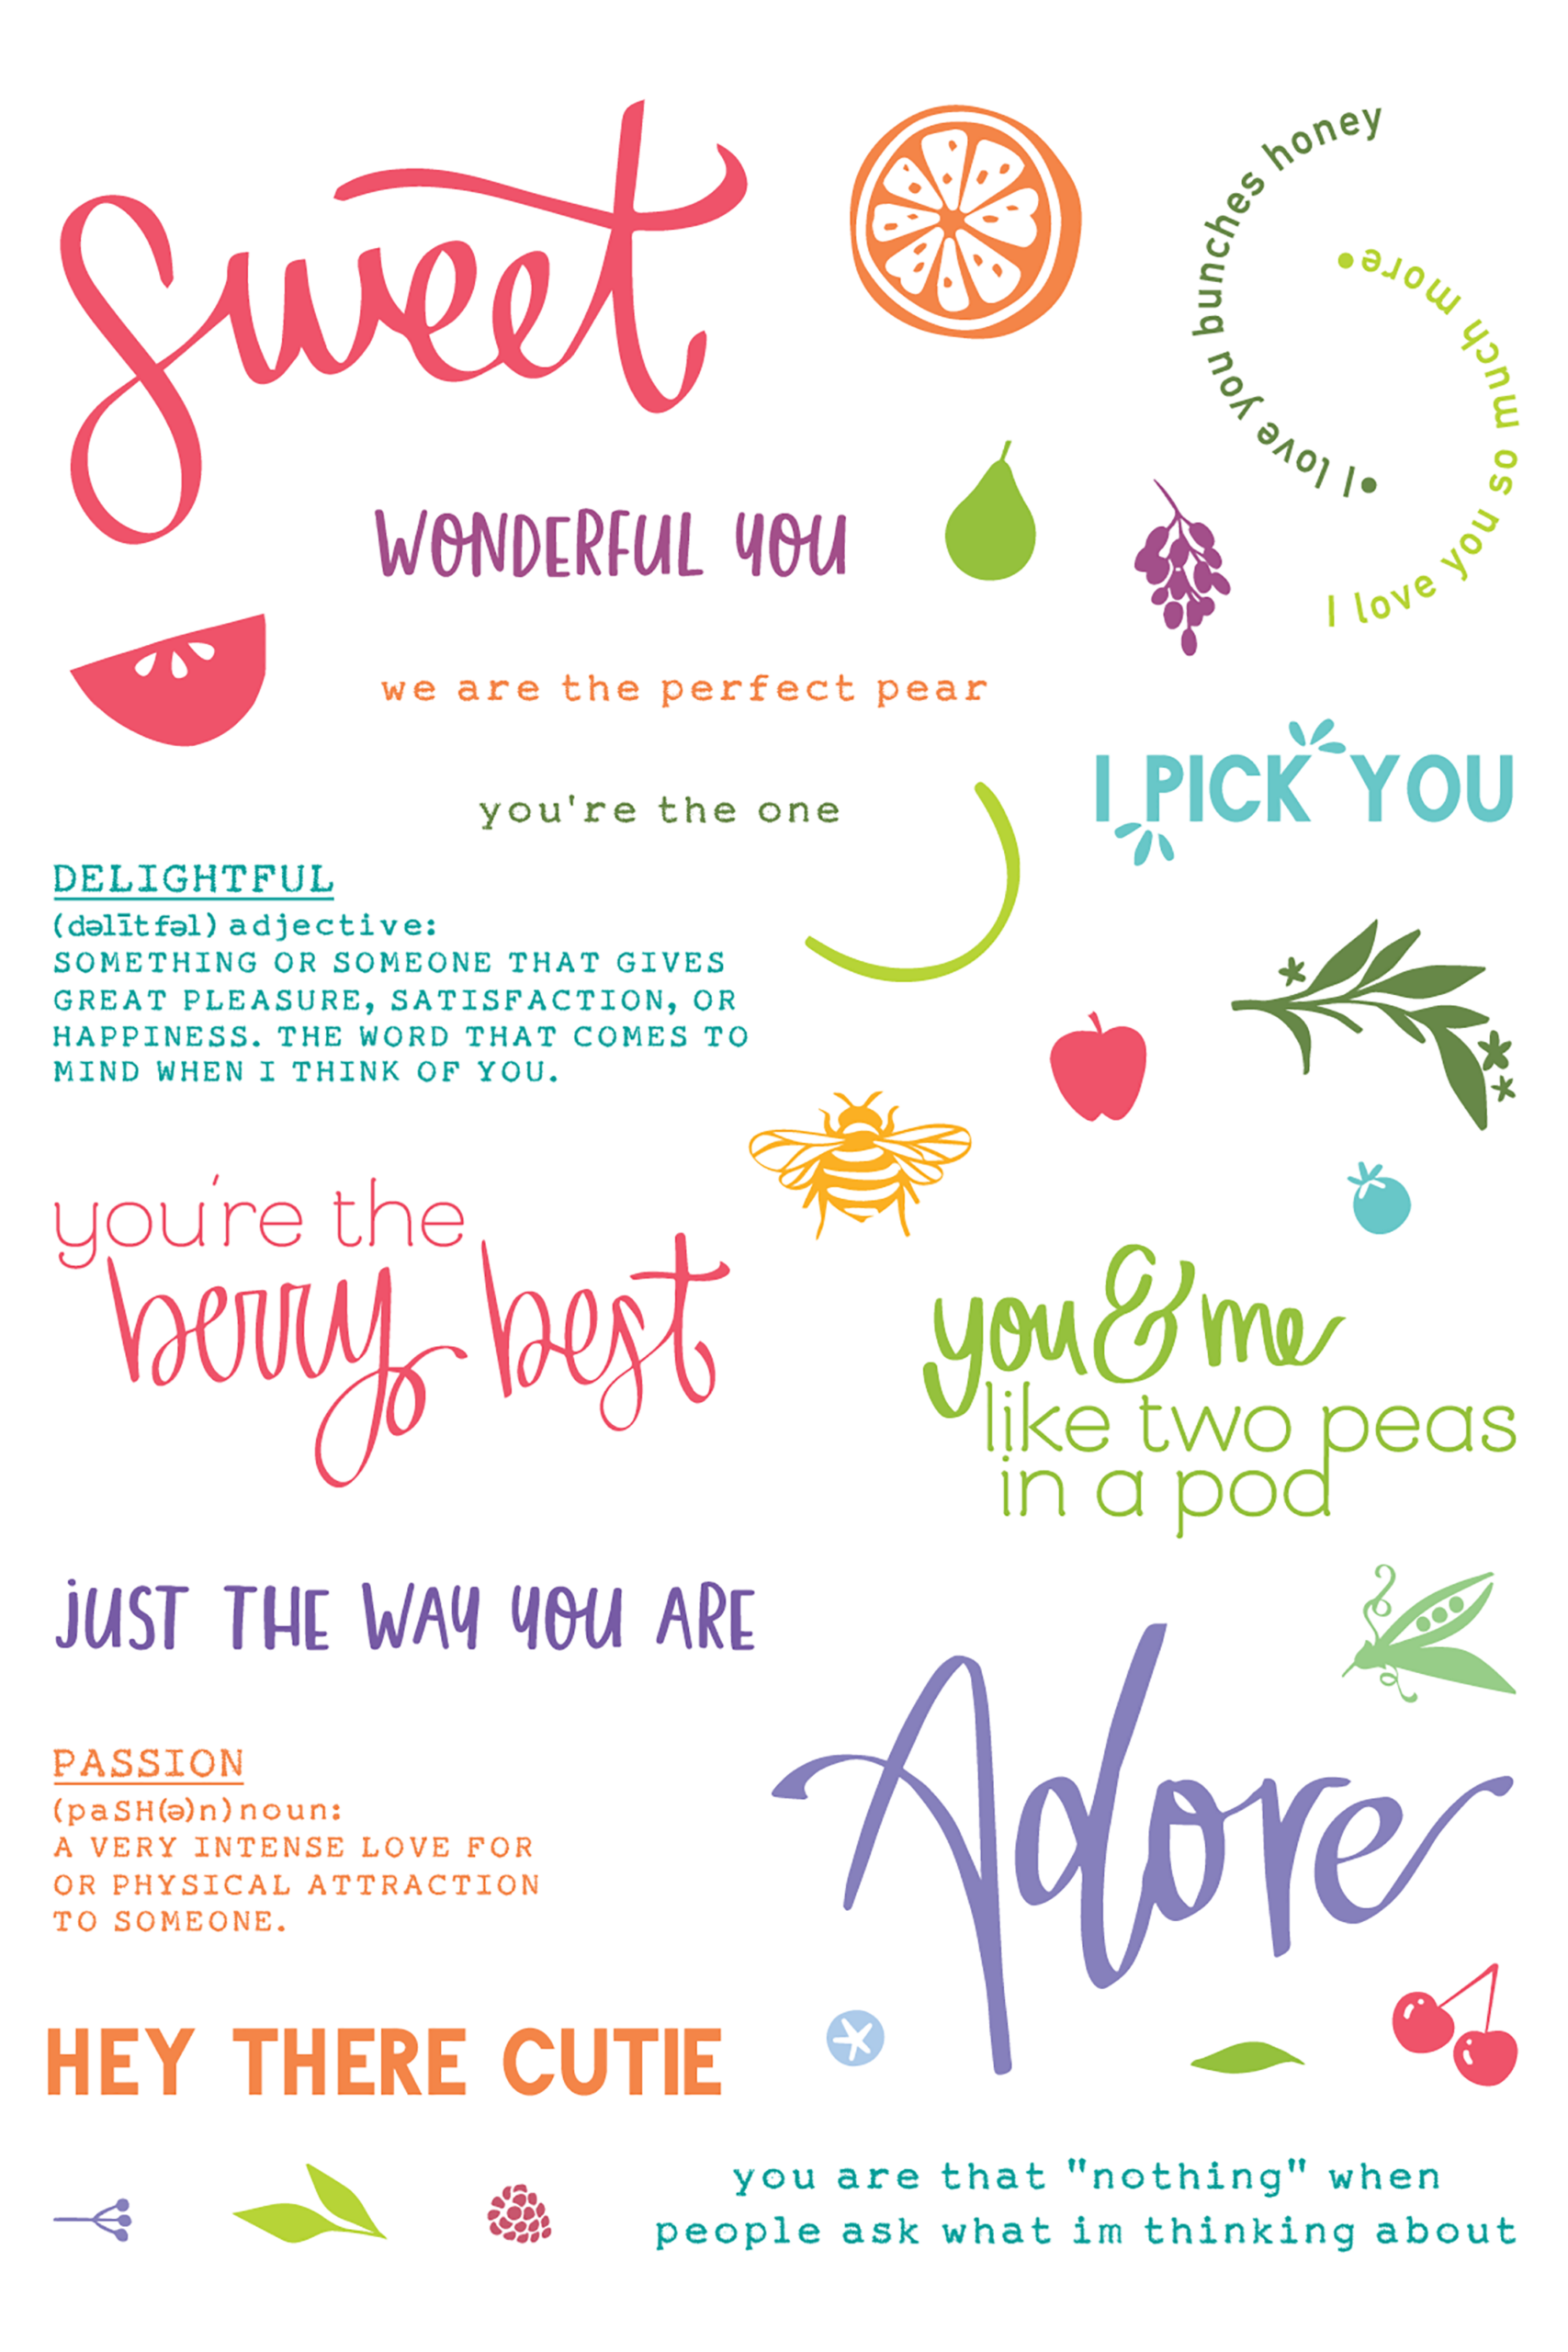 sweet
•I love you bunches honey
I love you so much more•
WONDERFUL YOU
we are the perfect pear
I PICK YOU
you're the one
DELIGHTFUL
(dəlītfəl) adjective:
SOMETHING OR SOMEONE THAT GIVES
GREAT PLEASURE, SATISFACTION, OR
HAPPINESS. THE WORD THAT COMES TO
MIND WHEN I THINK OF YOU.
you're the
berry best
you & me
like two peas
in a pod
jUST THE WAY YOU ARE
Adore
PASSION
(paSH(ə)n) noun:
A VERY INTENSE LOVE FOR
OR PHYSICAL ATTRACTION
TO SOMEONE.
HEY THERE CUTIE
you are that "nothing" when
people ask what im thinking about